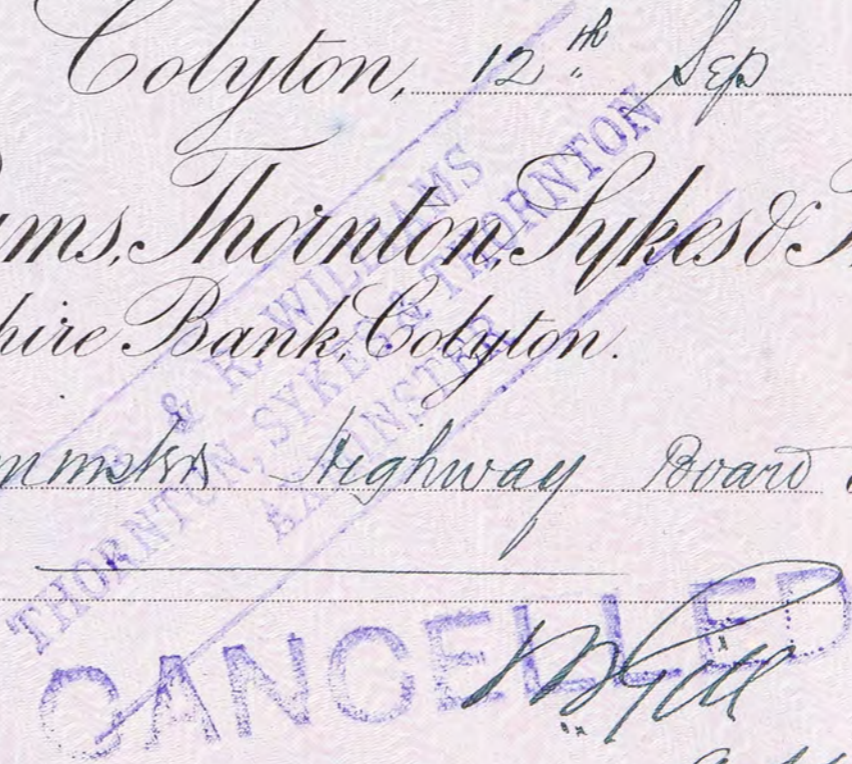 Colyton, 12th Sep
ms, Thornton, Sykes &
hire Bank, Colyton.
Highway Board
& R. WILLIAMS
THORNTON, SYKES & THORNTON
AXMINSTER
CANCELLED
Gill